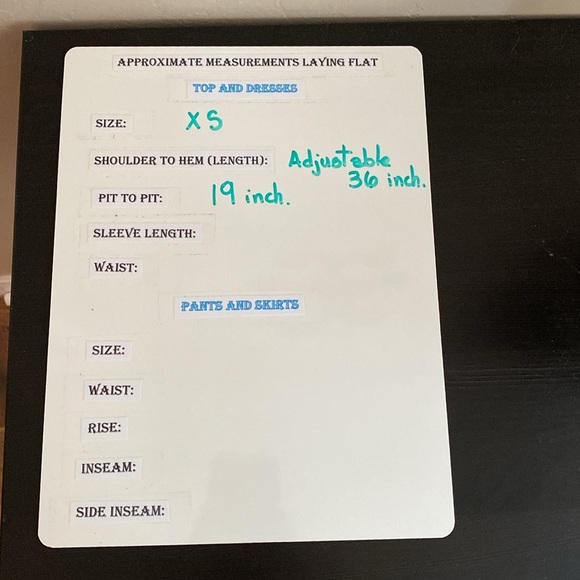 APPROXIMATE MEASUREMENTS LAYING FLAT
TOP AND DRESSES
SIZE: XS
SHOULDER TO HEM (LENGTH): Adjustable
36 inch.
PIT TO PIT: 19 inch.
SLEEVE LENGTH:
WAIST:
PANTS AND SKIRTS
SIZE:
WAIST:
RISE:
INSEAM:
SIDE INSEAM: